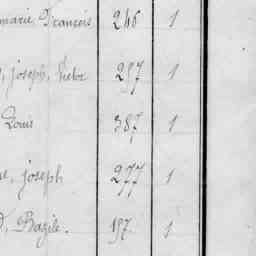 marie François 246 1
, joseph, Victor 297 1
Louis 387 1
e, joseph 277 1
d, Bazile. 197 1